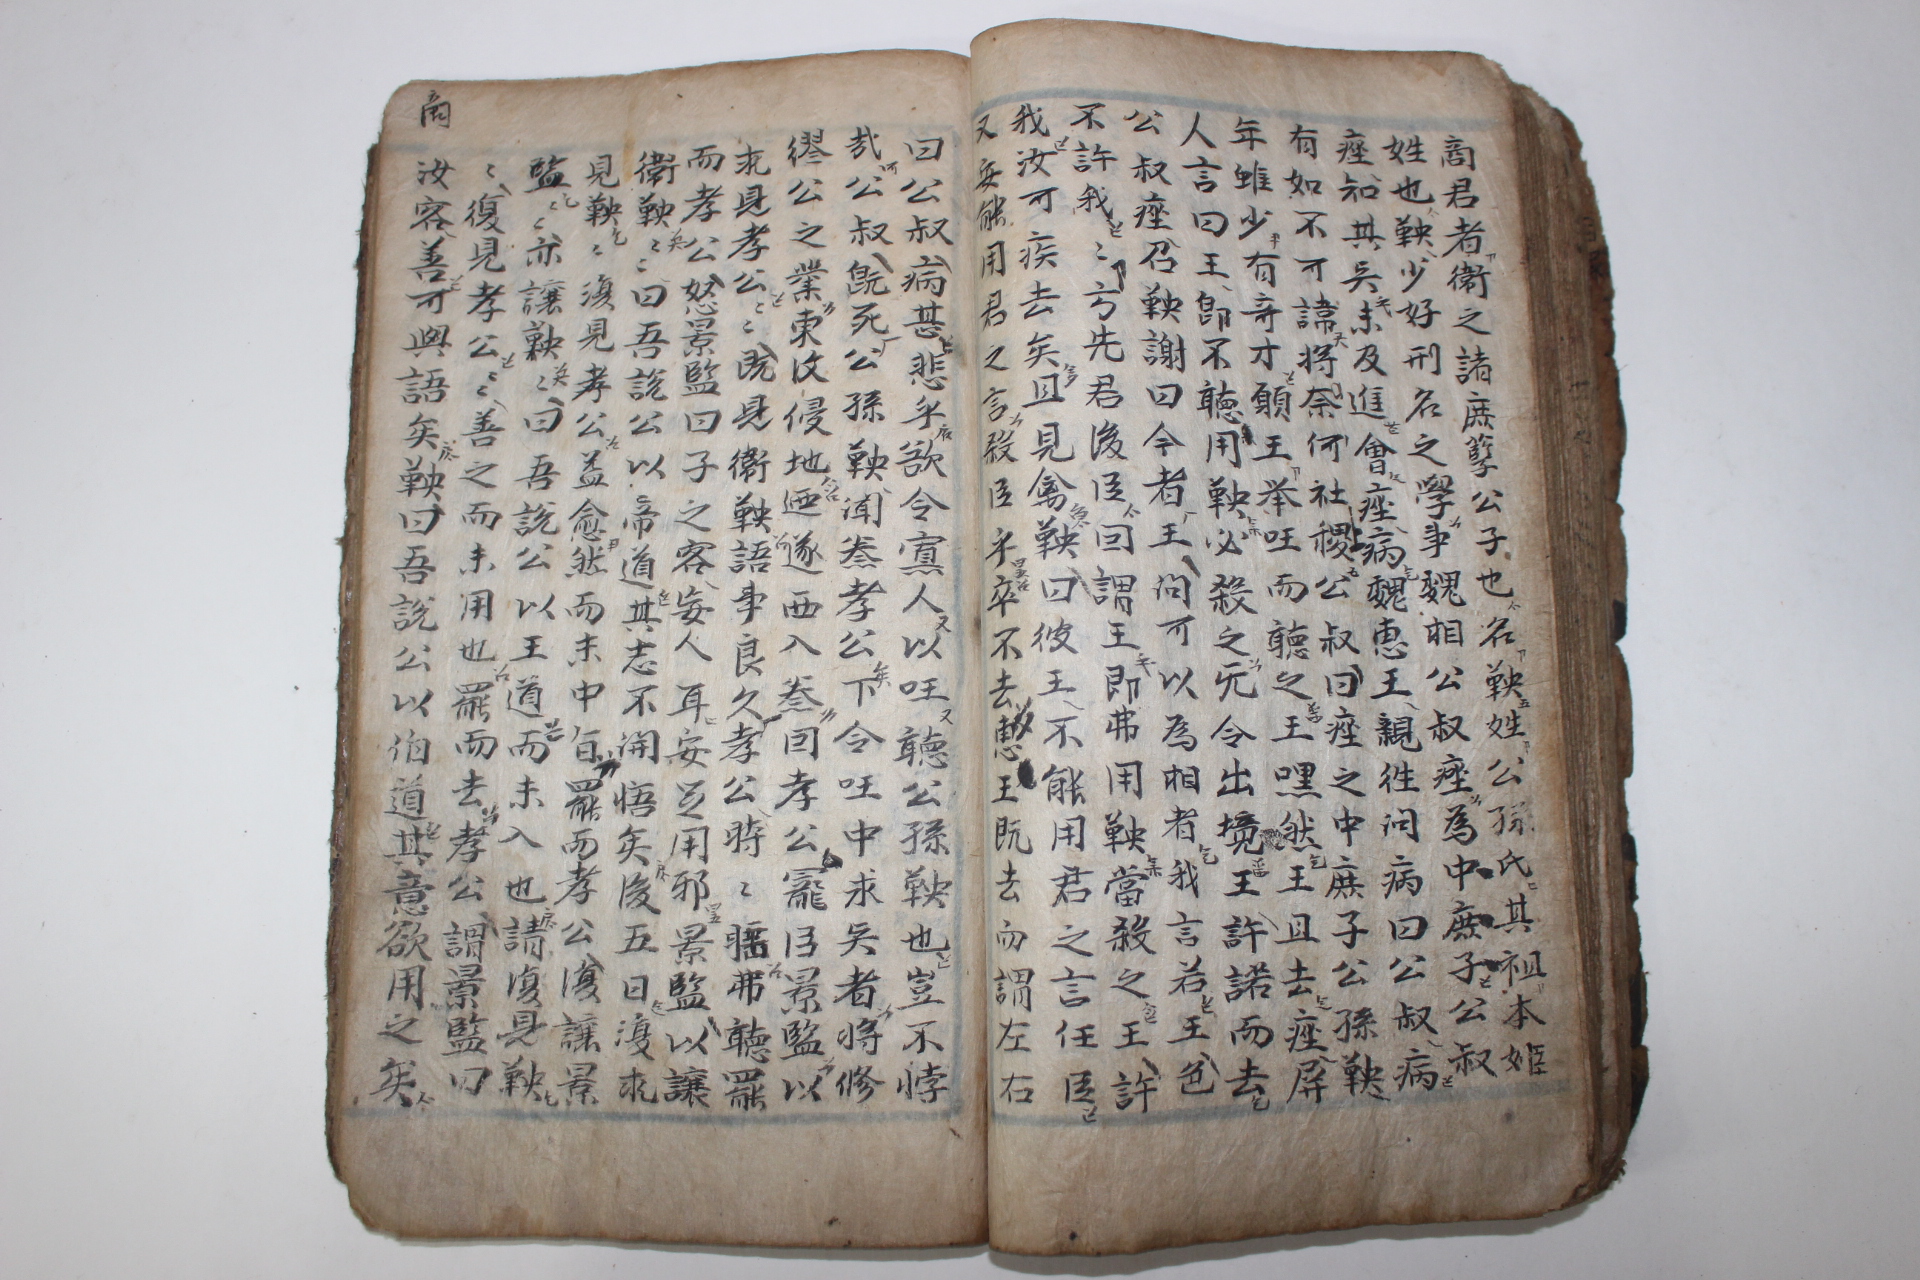 商君者衛之諸庶孽公子也名鞅姓公孫氏其祖本姬
姓也鞅少好刑名之學事魏相公叔痤為中庶子公叔
痤知其賢未及進會痤病魏惠王親徃问病曰公叔病
有如不可諱將奈何社稷公叔曰痤之中庶子公孫鞅
年雖少有奇才願王举囯而聽之王嘿然王且去痤屏
人言曰王即不聽用鞅必殺之无令出境王許諾而去
公叔痤召鞅謝曰今者王问可以為相者我言若王色
不許我〻方先君後臣因謂王即弗用鞅當殺之王許
我汝可疾去矣且見禽鞅曰彼王不能用君之言任臣
又安能用君之言殺臣乎卒不去惠王既去而謂左右
曰公叔病甚悲乎欲令寡人以囯聽公孫鞅也豈不悖
哉公叔既死公孫鞅闻秦孝公下令囯中求賢者將修
繆公之業東復侵地廼遂西入秦因孝公寵臣景監以
求見孝公〻既見衛鞅語事良久孝公時〻睡弗聽罷
而孝公怒景監曰子之客妄人耳安足用邪景監以讓
衛鞅〻曰吾說公以帝道其志不開悟矣後五日復求
見鞅〻復見孝公益愈然而未中旨罷而孝公復讓景
監〻亦讓鞅〻曰吾說公以王道而未入也請復見鞅
〻復見孝公〻善之而未用也罷而去孝公謂景監曰
汝客善可與語矣鞅曰吾說公以伯道其意欲用之矣
商